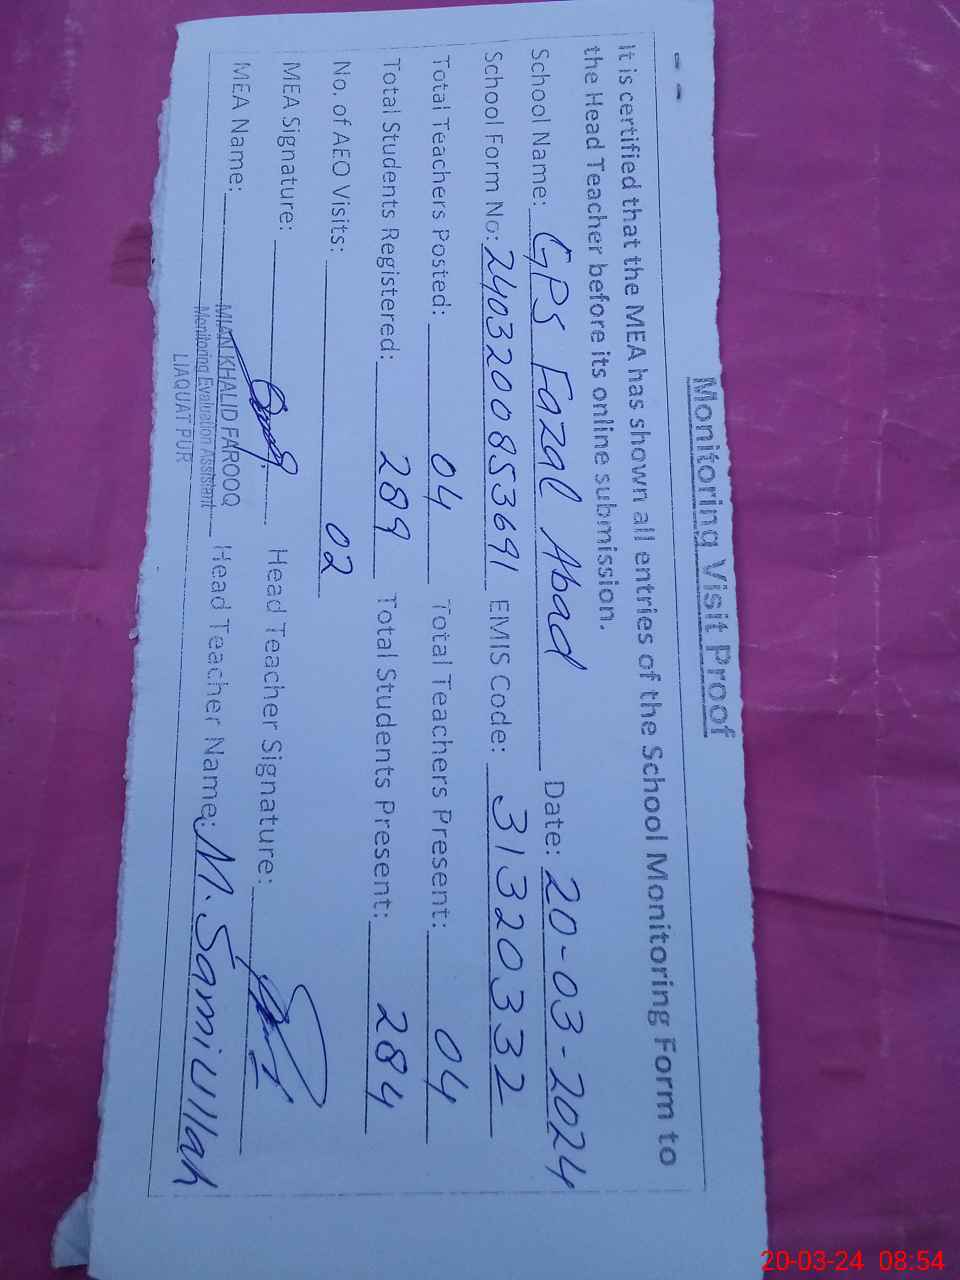 Monitoring Visit Proof
It is certified that the MEA has shown all entries of the School Monitoring Form to
the Head Teacher before its online submission.
School Name: GPS Fazal Abad Date: 20-03-2024
School Form No: 24032008853691 EMIS Code: 31320332
Total Teachers Posted: 04 Total Teachers Present: 04
Total Students Registered: 289 Total Students Present: 284
No. of AEO Visits: 02
MEA Signature: Head Teacher Signature:
MEA Name: MIAN KHALID FAROOQ Head Teacher Name: M. Samiullah
Monitoring Evaluation Assistant
LIAQUAT PUR
20-03-24 08:54